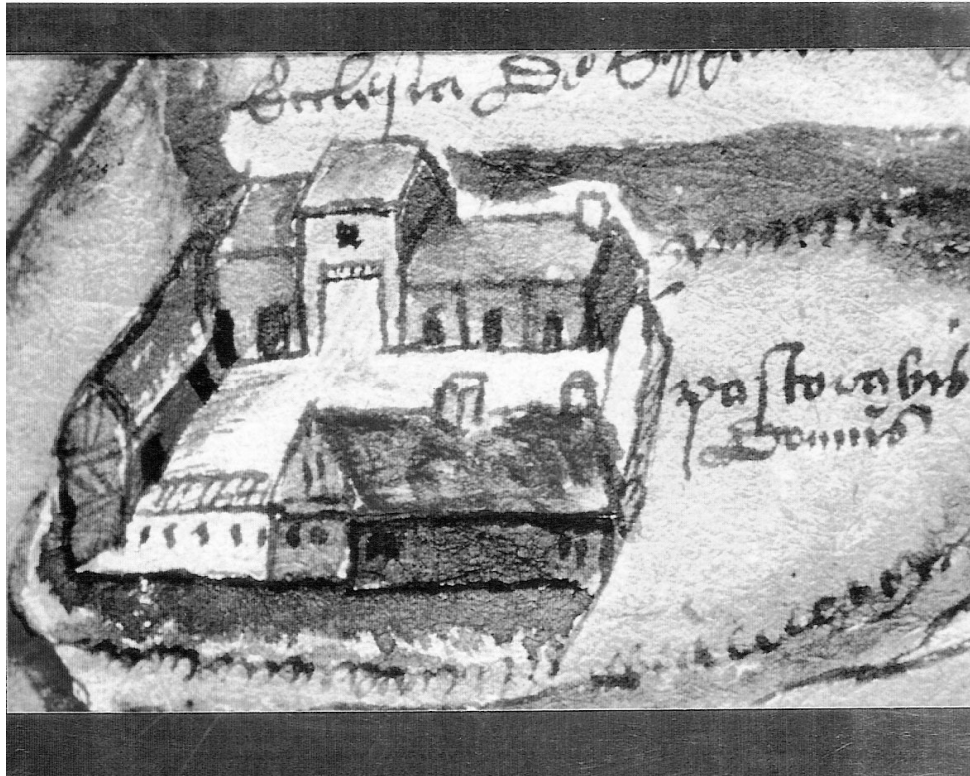 Ecclesia De
pastoralis
Domus